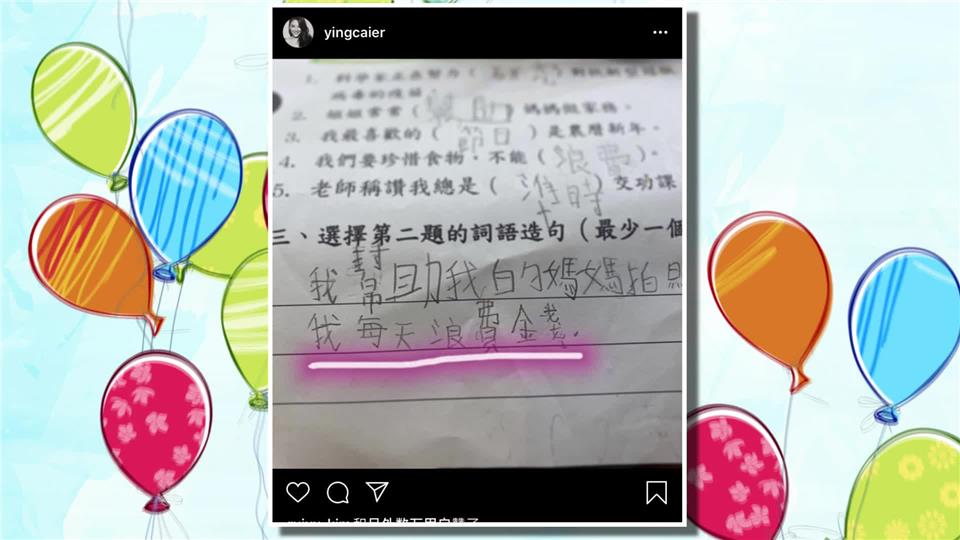 yingcaier
1. 科學家正在努力（
2. 姐姐常常（幫助）媽媽做家務。
3. 我最喜歡的（節日）是農曆新年。
4. 我們要珍惜食物，不能（浪費）。
5. 老師稱讚我總是（準時）交功課
三、選擇第二題的詞語造句（最少一個
我幫助我的媽媽拍照
我每天浪費金錢.